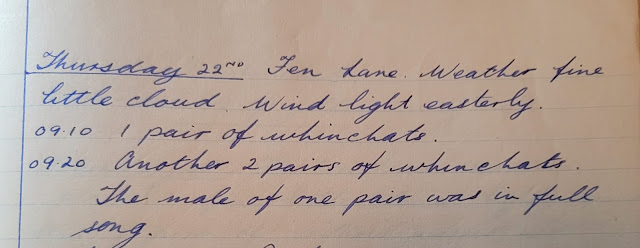 Thursday 22ND Fen Lane. Weather fine
little cloud. Wind light easterly.
09.10 1 pair of whinchats.
09.20 Another 2 pairs of whinchats.
The male of one pair was in full
song.